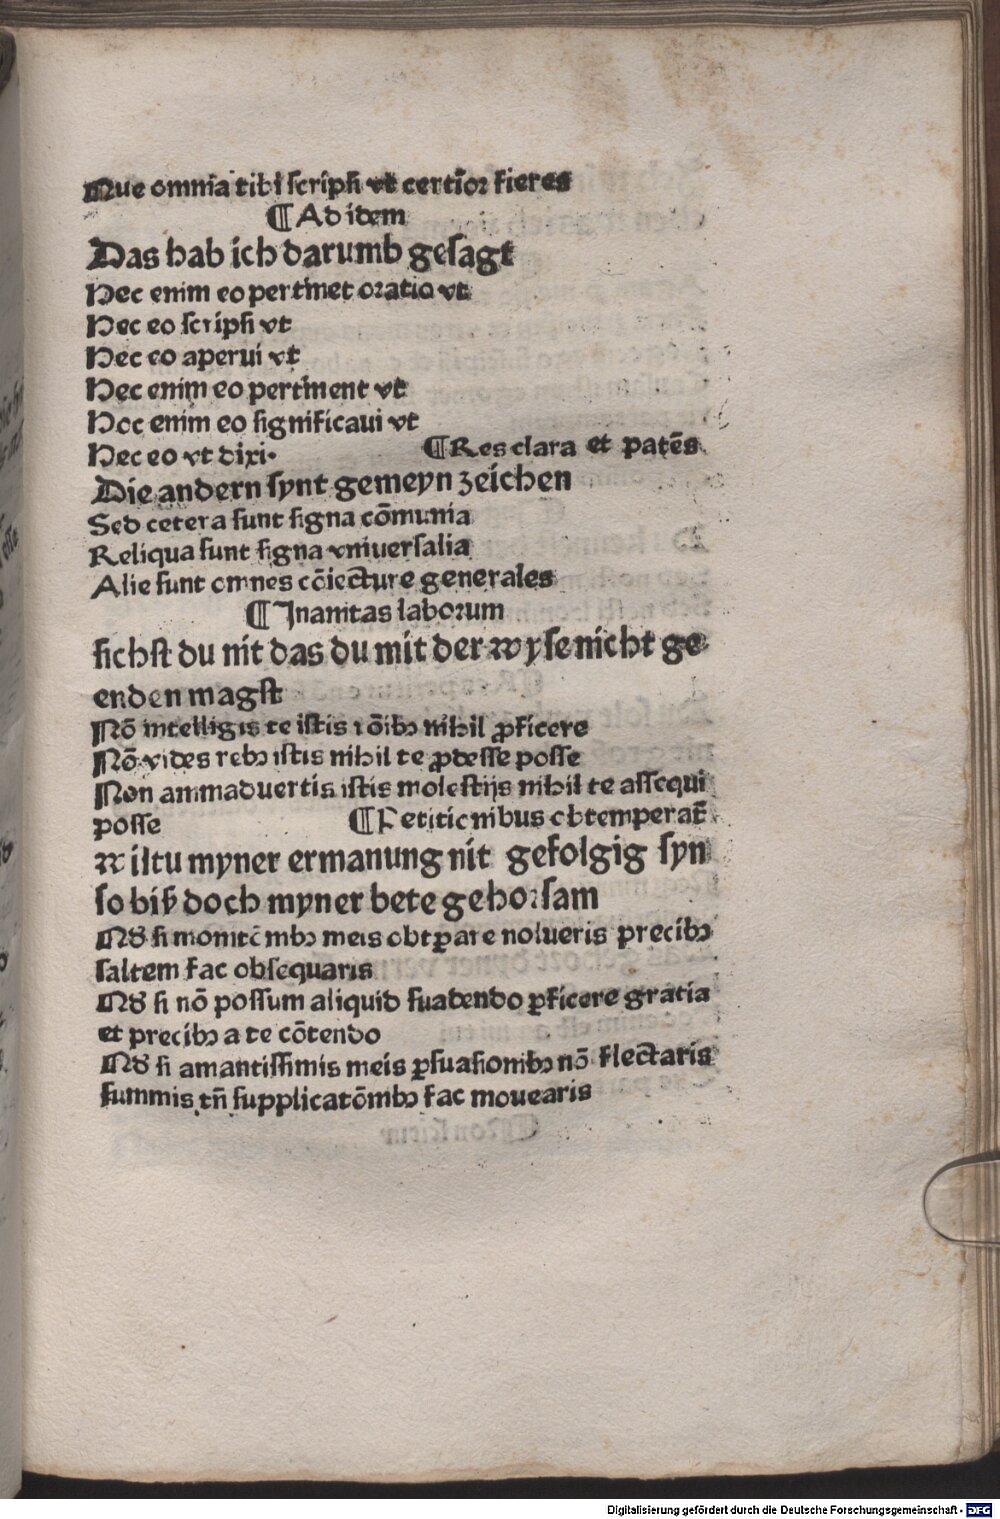 Que omnia tibi scripsi vt certior fieres
¶ Ad idem
Das hab ich darumb gesagt
Hec enim eo pertinet oratio vt
Hec eo scripsi vt
Hec eo aperui vt
Hec enim eo pertinent vt
Hoc enim eo significaui vt
Hec eo vt dixi. ¶ Res clara et patēs
Die andern synt gemeyn zeichen
Sed cetera sunt signa cōmunia
Reliqua sunt signa vniuersalia
Alie sunt omnes cōiecture generales
¶ Inanitas laborum
sichst du nit das du mit der wyse nicht ge
enden magst
Nō intelligis te istis rōibꝫ nihil ꝓficere
Nō vides rebꝫ istis nihil te ꝓdesse posse
Non animaduertis istis molestijs nihil te assequi
posse ¶ Petitionibus obtemperat̄
wiltu myner ermanung nit gefolgig syn
so biß doch myner bete gehorsam
si monitōnibꝫ meis obtꝑare nolueris precibꝫ
saltem fac obsequaris
si nō possum aliquid suadendo ꝓficere gratia
et precibꝫ a te cōtendo
si amantissimis meis ꝑsuasionibꝫ nō flectaris
summis tn̄ supplicatōnibꝫ fac mouearis
Digitalisierung gefördert durch die Deutsche Forschungsgemeinschaft - DFG